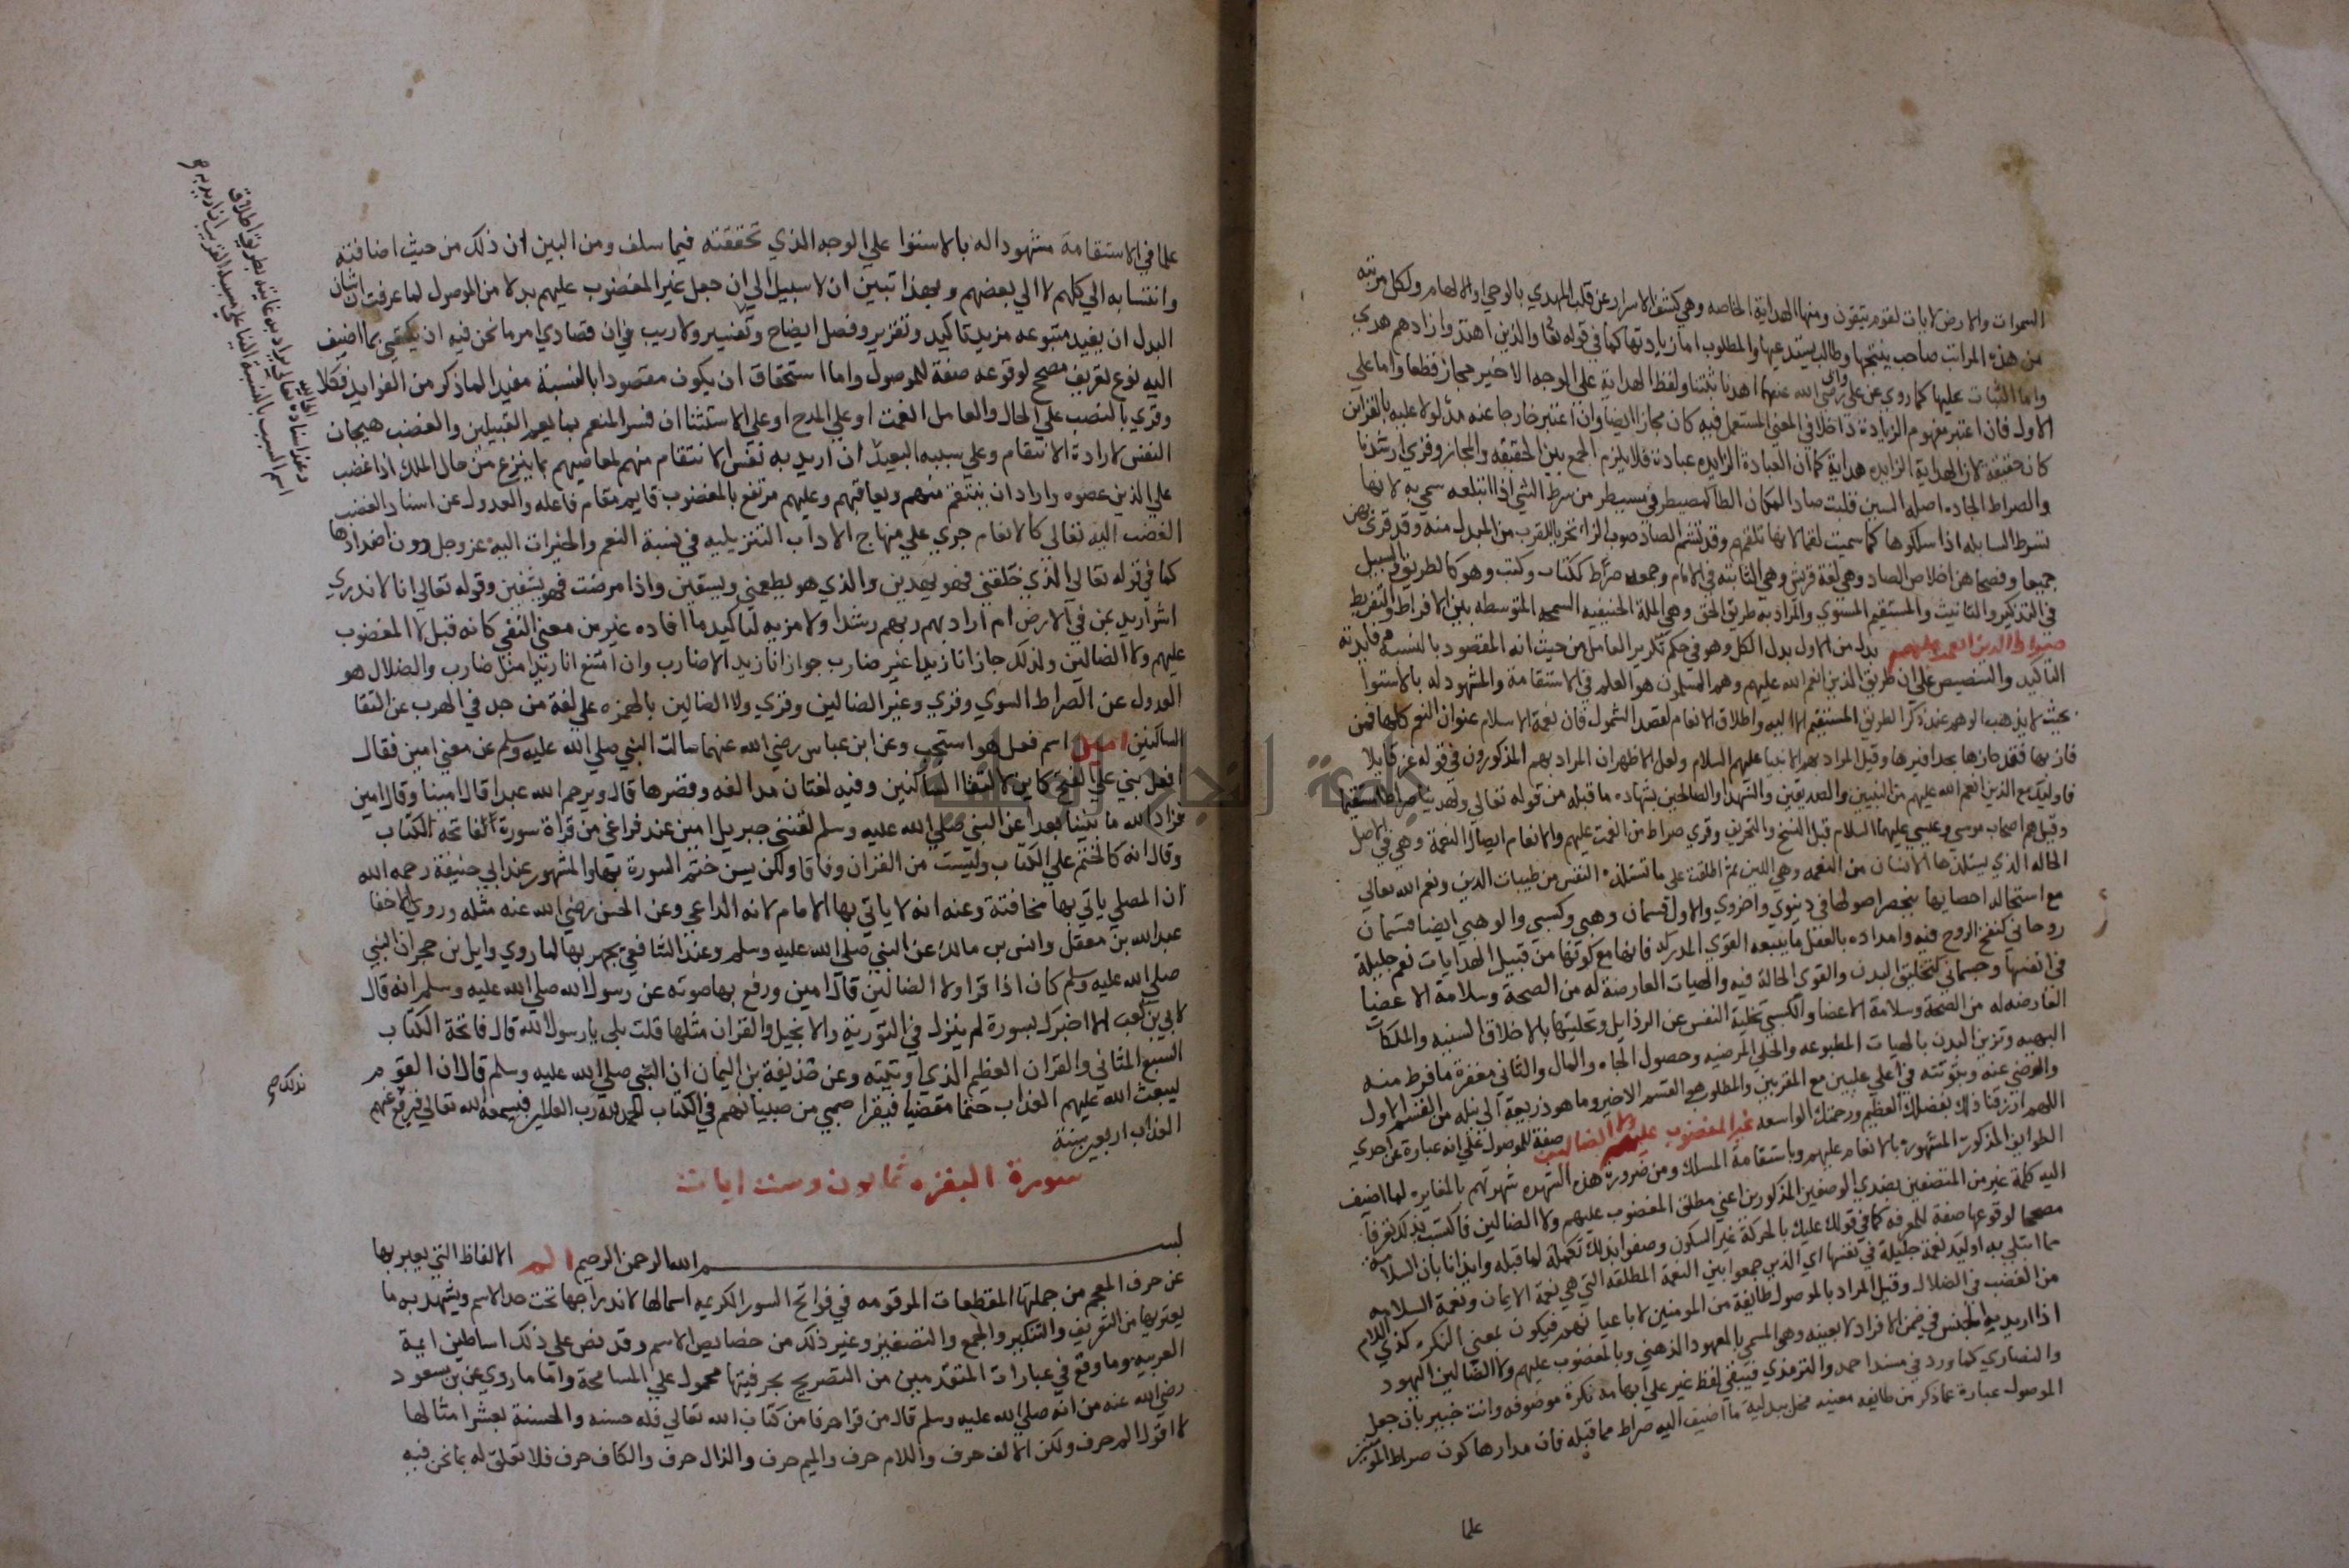 السموات والارض لايات لقوم يتقون ومنها الهداية الخاصه وهي كشف الاسرار عن قلب المهدي بالوحي او الالهام ولكل مرتبه
من هذه المراتب صاحب ينتحيها وطالب يستدعيها والمطلوب اما زيادتها كما في قوله تعا والذين اهتدوا زادهم هدي
واما الثبات عليها كما روي عن علي وابي رضي الله عنهما اهدنا ثبتنا ولفظ الهداية علي الوجه الاخير مجاز قطعا واما علي
الاول فان اعتبر مفهوم الزيادة داخلا في المعني المستعمل فيه كان مجازا ايضا وان اعتبر خارجا عنه مدلولا عليه بالقراين
كان حقيقة لان الهداية الزايده هداية كما ان العبادة الزايده عبادة فلا يلزم الجمع بين الحقيقه والمجاز وقري ارشدنا
والصراط الجاده اصله السين قلبت صادا لمكان الطا كمصيطر في مسيطر من سرط الشي اذا ابتلعه سمي به لانها
تسرط السابله اذا سلكوها كما سميت لقما لانها تلتقمهم وقد تشم الصاد صوت الزا تحريا للقرب من المبدل منه وقد قري بهن
جميعا وفصحاهن اخلاص الصاد وهي لغة قريش وهي الثابته في الامام وجمعه صرط ككتاب وكتب وهو كالطريق والسبيل
في التذكير والتانيث والمستقيم المستوي والمراد به طريق الحق وهي الملة الحنيفيه السمحه المتوسطه بين الافراط والتفريط
صراط الذين انعمت عليهم بدل من الاول بدل الكل وهو في حكم تكرير العامل من حيث انه المقصود بالنسبه وفايدته
التاكيد والتنصيص علي ان طريق الذين انعم الله عليهم وهم المسلمون هو العلم في الاستقامة والمشهود له بالاستوا
بحيث لا يذهب الوهم عند ذكر الطريق المستقيم الا اليه واطلاق الانعام لقصد الشمول فان نعمة الاسلام عنوان النعم كلها فمن
فاز بها فقد حازها بحذافيرها وقيل المراد بهم الانبيا عليهم السلام ولعل الاظهر ان المراد بهم المذكورون في قوله عز قايلا
فاوليك مع الذين انعم الله عليهم من النبيين والصديقين والشهدا والصالحين بشهاده ما قبله من قوله تعالي ولهديناهم صراطا مستقيما
وقيل هم اصحاب موسي وعيسي عليهما السلام قبل النسخ والتحريف وقري صراط من انعمت عليهم والانعام ايصال النعمة وهي في الاصل
الحاله الذي يستلذها الانسان من النعمه وهي اللين ثم اطلقت علي ما تستلذه النفس من طيبات الدين ونعم الله تعالي
مع استحالة احصايها ينحصر اصولها في دنيوي واخروي والاول قسمان وهبي وكسبي والوهبي ايضا قسمان
روحاني كنفخ الروح فيه وامداده بالعقل ما يتبعه القوي المدركه فانها مع كونها من قبيل الهدايات نعم جليلة
في انفسها وجسماني كتخليق البدن والقوي الحالة فيه والهيات العارضة له من الصحة وسلامة الاعضا
العارضه له من الصحة وسلامة الاعضا والكسبي تخلية النفس عن الرذايل وتحليتها بالاخلاق السنيه والملكات
البهيه وتزين البدن بالهيات المطبوعه والحلي المرضيه وحصول الجاه والمال والثاني مغفرة ما فرط منه
والرضي عنه وتبوئته في اعلي عليين مع المقربين والمطلوب هو القسم الاخير وما هو ذريعة الي نيله من القسم الاول
اللهم ارزقنا ذلك بفضلك العظيم ورحمتك الواسعه غير المغضوب عليهم ولا الضالين صفة للموصول علي انه عبارة عن احدي
الطوايف المذكورة المشهورة بالانعام عليهم وباستقامة المسلك ومن ضرورة هذه الشهره شهرتهم بالمغايره لما اضيف
اليه كلمة غير من المتصفين بضدي الوصفين المذكورين اعني مطلق المغضوب عليهم ولا الضالين فاكتسبت بذلك تعرفا
مصححا لوقوعها صفة للمعرفه كما في قولك عليك بالحركة غير السكون وصفوا بذلك تكملة لما قبله وايذانا بان السلامة
مما ابتلي به اوليك نعمة جليلة في نفسها اي الذين جمعوا بين النعمة المطلقه التي هي نعمة الايمان ونعمة السلامه
من الغضب في الضلال وقيل المراد بالموصول طايفة من المومنين لا باعيانهم فيكون بمعني النكره كذي اللام
اذا اريد به الجنس في ضمن الافراد لا بعينه وهو المسمي بالمعهود الذهني وبالمغضوب عليهم ولا الضالين اليهود
والنصاري كما ورد في مسند احمد والترمذي فيبقي لفظ غير علي ابهامه نكرة موصوفه وانت خبير بان جعل
الموصول عبارة عما ذكر من طايفه معينه مخل ببدلية ما اضيف اليه صراط مما قبله فان مدارها كون صراط المومنين
علما
علما في الاستقامة مشهودا له بالاستوا علي الوجه الذي تحققته فيما سلف ومن البين ان ذلك من حيث اضافته
وانتسابه الي كلهم لا الي بعضهم وبهذا تبين ان لا سبيل الي ان جعل غير المغضوب عليهم بدلا من الموصول لما عرفت ان شان
البدل ان يفيد متبوعه مزيد تاكيد وتقرير وفضل ايضاح وتفسير ولا ريب في ان قصاري امر ما نحن فيه ان يكتفي بما اضيف
اليه نوع تعريف مصحح لوقوعه صفة للموصول واما استحقاق ان يكون مقصودا بالنسبة مفيدا لما ذكر من الفوايد فكلا
وقري بالنصب علي الحال والعامل انعمت او علي المدح او علي الاستثنا ان فسر المنعم بما يعم القبيلين والغضب هيجان
النفس لارادة الانتقام وعلي سببه البعيد ان اريد به نفس الانتقام منهم لمعاصيهم بما ينزع من حال الملك اذا غضب
علي الذين عصوه واراد ان ينتقم منهم ويعاقبهم وعليهم مرتفع بالمغضوب قايم مقام فاعله والعدول عن اسناد الغضب
الغضب اليه تعالي كالانعام جري علي منهاج الاداب التنزيليه في نسبة النعم والخيرات اليه عز وجل دون اضدادها
كما في قوله تعالي الذي خلقني فهو يهدين والذي هو يطعمني ويسقين واذا مرضت فهو يشفين وقوله تعالي انا لا ندري
اشر اريد بمن في الارض ام اراد بهم ربهم رشدا ولا مزيه لتاكيد ما افاده غير من معني النفي كانه قيل لا المغضوب
عليهم ولا الضالين ولذلك جاز انا زيدا غير ضارب جواز انا زيدا لا ضارب وان امتنع انا زيدا مثل ضارب والضلال هو
العدول عن الصراط السوي وقري وغير الضالين وقري ولا الضالين بالهمزه علي لغة من جد في الهرب عن التقا
الساكنين امين اسم فعل هو استجب وعن ابن عباس رضي الله عنهما سالت النبي صلي الله عليه وسلم عن معني امين فقال
افعل بني علي الفتح كاين لالتقا الساكنين وفيه لغتان مد الفه وقصرها قال ويرحم الله عبدا قال امينا وقال امين
فزاد الله ما بيننا بعدا عن النبي صلي الله عليه وسلم لقنني جبريل امين عند فراغي من قراة سورة الفاتحه الكتاب
وقال انه كالختم علي الكتاب وليست من القران وفاقا ولكن يسن ختم السورة بها والمشهور عند ابي حنيفة رحمه الله
ان المصلي ياتي بها مخافتة وعنه انه لا ياتي بها الامام لانه الداعي وعن الحسن رضي الله عنه مثله وروي الاخفا
عبد الله بن مغفل وانس بن مالك عن النبي صلي الله عليه وسلم وعند الشافعي يجهر بها لما روي وايل بن حجر ان النبي
صلي الله عليه وسلم كان اذا قرا ولا الضالين قال امين ورفع بها صوته عن رسول الله صلي الله عليه وسلم انه قال
لابي بن كعب الا اخبرك بسورة لم ينزل في التورية والانجيل والقران مثلها قلت بلي يا رسول الله قال فاتحة الكتاب
السبع المثاني والقران العظيم الذي اوتيته وعن حذيفة بن اليمان ان النبي صلي الله عليه وسلم قال ان القوم
ليبعث الله عليهم العذاب حتما مقضيا فيقرا صبي من صبيانهم في الكتاب الحمد لله رب العالمين فيسمعه الله تعالي فيرفع عنهم
العذاب اربعين سنة
سورة البقره ثمانون وست ايات
بسم الله الرحمن الرحيم الم الالفاظ التي يعبر بها
عن حرف المعجم من جملتها المقطعات المرقومه في فواتح السور الكريمه اسما لها لاندراجها تحت حد الاسم ويشهد به ما
يعتريها من التعريف والتنكير والجمع والتصغير وغير ذلك من خصايص الاسم وقد نص علي ذلك اساطين ايمة
العربيه وما وقع في عبارات المتقدمين من التصريح بحرفيتها محمول علي المسامحة واما ما روي عن بن مسعود
رضي الله عنه من انه صلي الله عليه وسلم قال من قرا حرفا من كتاب الله تعالي فله حسنه والحسنة بعشر امثالها
لا اقول الم حرف ولكن الالف حرف واللام حرف والميم حرف والذال حرف والكاف حرف فلا تعلق له بما نحن فيه